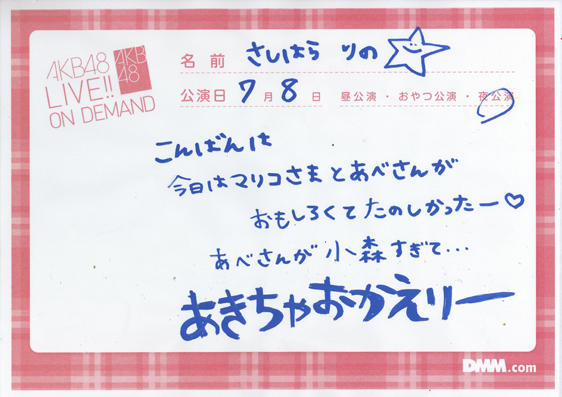 AKB48
LIVE!!
ON DEMAND
AKB
48
名前 さしはら りの
公演日 7月8日 昼公演・おやつ公演・夜公演
こんばんは
今日はマリコさまとあべさんが
おもしろくてたのしかったー♡
あべさんが小森すぎて...
あきちゃおかえりー
DMM.com